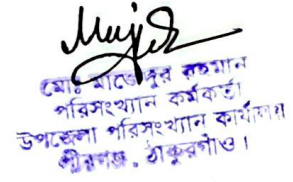 মোঃ মাজেদুর রহমান
পরিসংখ্যান কর্মকর্তা
উপজেলা পরিসংখ্যান কার্যালয়
পীরগঞ্জ, ঠাকুরগাঁও।